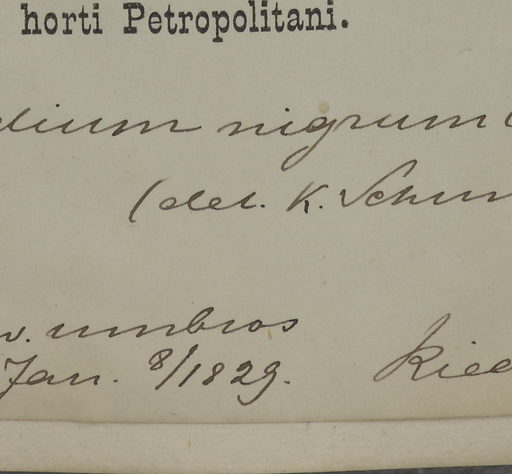 horti Petropolitani.
dium nigrum (
(det. K. Schum
v. umbros
Jan. 8/1829. Ried